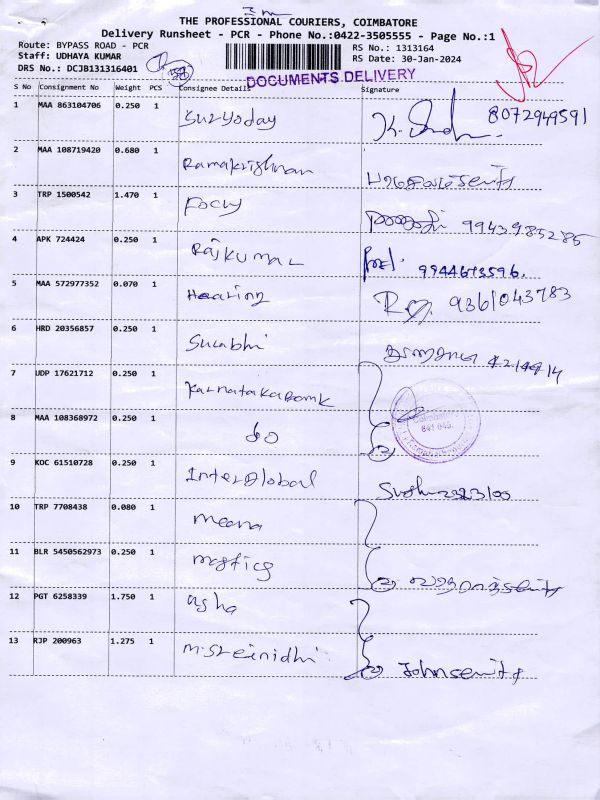 THE PROFESSIONAL COURIERS, COIMBATORE
Delivery Runsheet - PCR - Phone No.:0422-3505555 - Page No.:1
Route: BYPASS ROAD - PCR
RS No.: 1313164
Staff: UDHAYA KUMAR
RS Date: 30-Jan-2024
DRS No.: DCJB131316401
DOCUMENTS DELIVERY
S No Consignment No Weight PCS Consignee Details Signature
1 MAA 863104706 0.250 1 Suryoday 8072949591
2 MAA 108719420 0.680 1 Ramakrishnan
3 TRP 1500542 1.470 1 Focus 9943985285
4 APK 724424 0.250 1 Rajkumar 9944673596.
5 MAA 572977352 0.070 1 Hearing 9361043783
6 HRD 20356857 0.250 1 Surabhi
7 UDP 17621712 0.250 1 Karnataka Bank
8 MAA 108368972 0.250 1 do
9 KOC 61510728 0.250 1 Interglobal
10 TRP 7708438 0.080 1 meena
11 BLR 5450562973 0.250 1
12 PGT 6258339 1.750 1 asha
13 RJP 200963 1.275 1 M. Sreinidhi